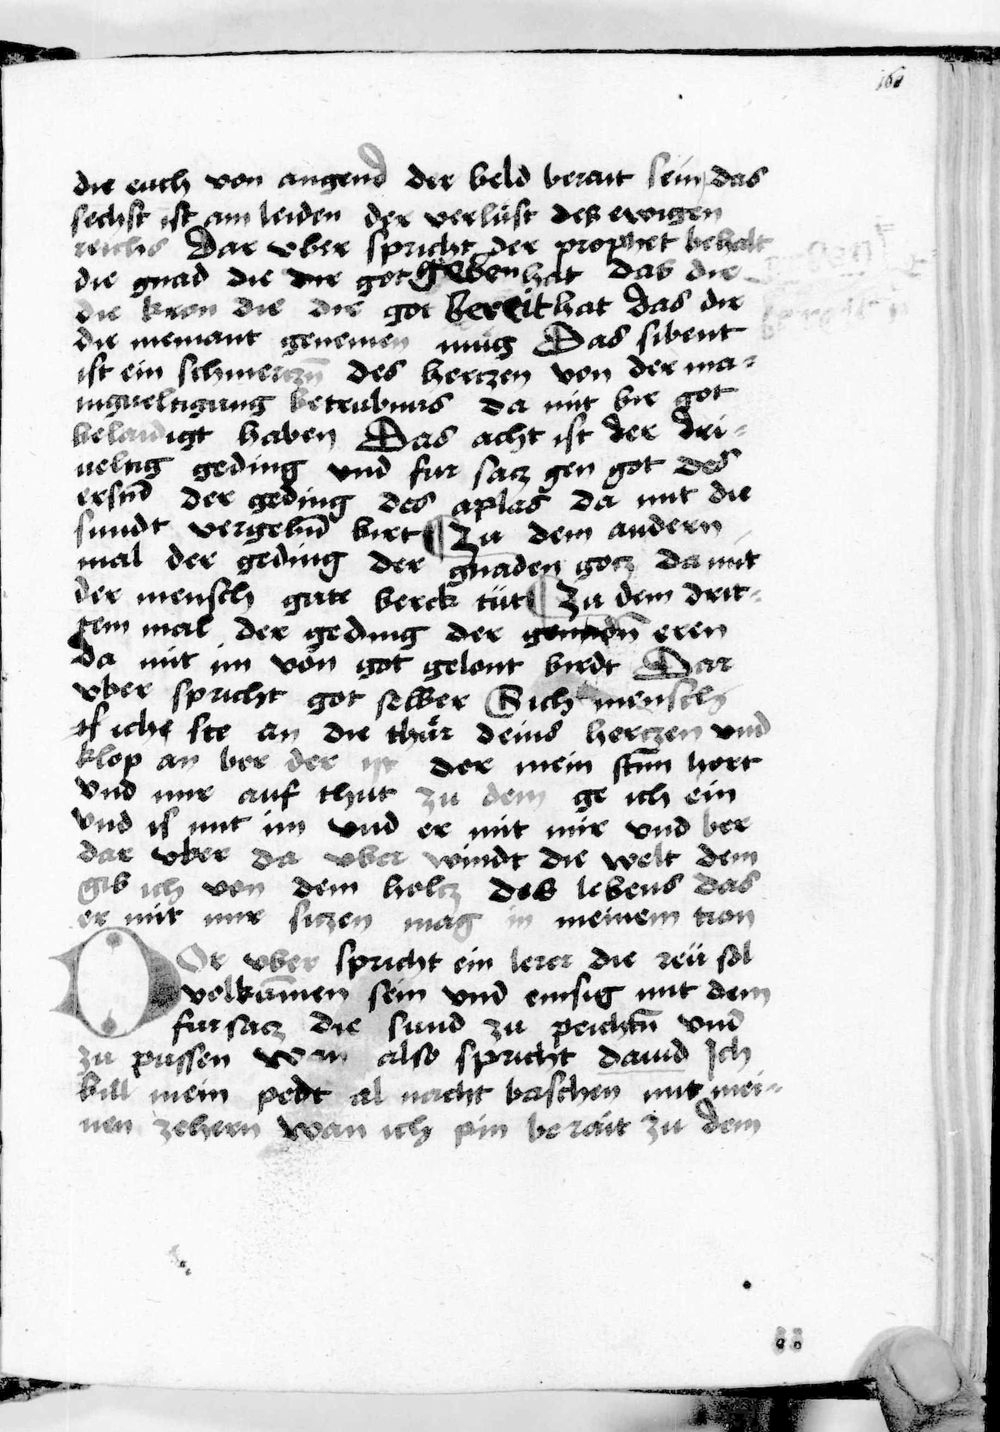 168
die euch von angend der beld berait sein das
sechst ist am leiden der verlust des ewigen
reichs Dar vber spricht der prophet behalt
die gnad die dir got geben hat das die
die kron die dir got bereit hat das dir
die niemant genemen mug Das sibent
ist ein schmerczn̄ des herczen von der ma-
nigueltigung betrubnus da mit bir got
belaidigt haben Das acht ist der dri-
ueltig geding vnd fur sacz gen got des
ersn̄d der geding des aplas da mit die
sundt vergebn̄ birt ¶ Zu dem andern
mal der geding der gnaden gocz da mit
der mensch gute berck tüt ¶ Zu dem drit-
tem mal der geding der eren
da mit im von got gelont birdt Dar
vber spricht got selber Sich mensch
ich ste an die thür deins herczen vnd
klop an ber der ist der mein stīm hort
vnd mir auf thut zu dem ge ich ein
vnd is mit im vnd er mit mir vnd ber
dar vber da vber windt die welt dem
gib ich von dem holcz des lebens das
er mit mir siczen mag in meinem tron
DOr vber spricht ein lerer die reü sol
volkum̄en sein vnd emsig mit dem
fursacz die sund zu peichtn̄ vnd
zu pussen wan also spricht dauid Ich
bill mein pedt al nacht baschen mit mei-
nen zehern wan ich pin berait zu dem